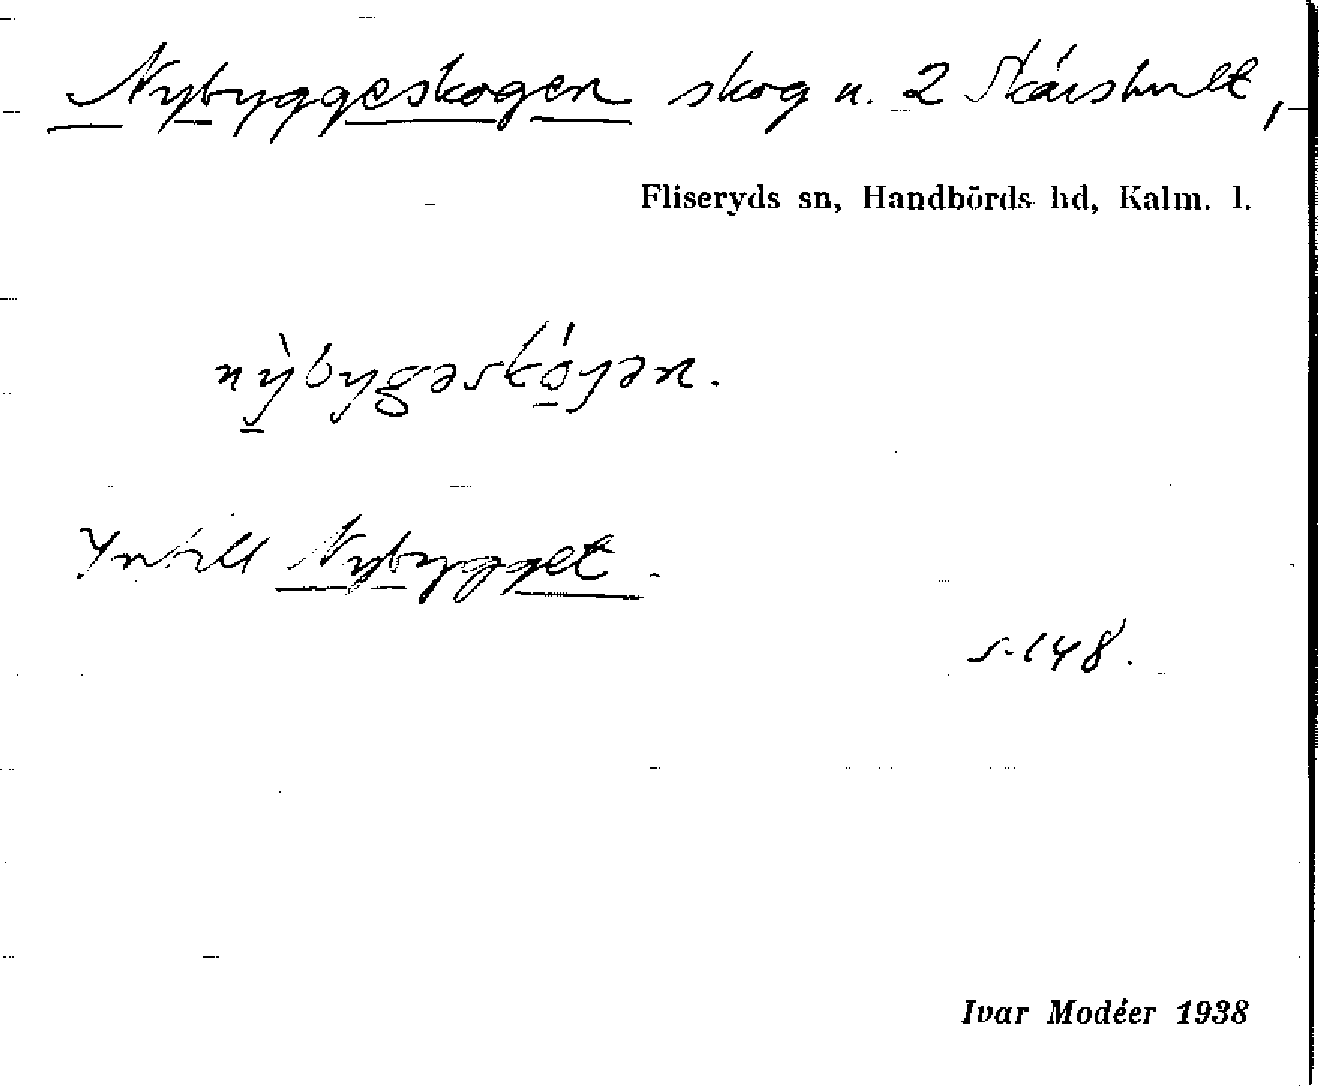 Nybyggeskogen skog u. 2 Skårshult,
Fliseryds sn, Handbörds hd, Kalm. l.
nỳbygəskó̱ɣən.
Intill Nybygget.
s. 148.
Ivar Modéer 1938